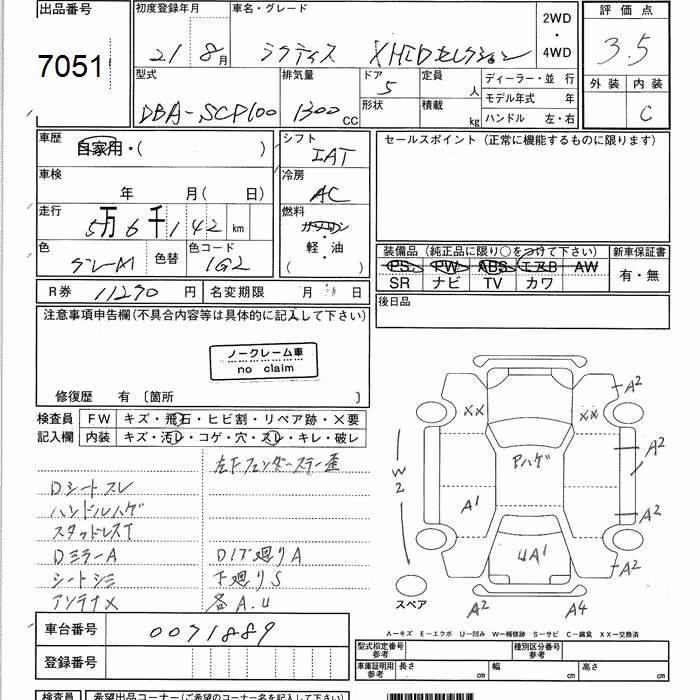 出品番号 初度登録年月 車名・グレード 2WD・4WD 評価点
7051 21 8月 ラクティス XHIDセレクション 3.5
型式 排気量 ドア 5 定員 人 ディーラー・並行 外装 内装
DBA-SCP100 1300cc 形状 積載 kg モデル年式 年 C
ハンドル 左・右
車歴 自家用・( ) シフト IAT セールスポイント(正常に機能するものに限ります)
車検 年 月(日) 冷房 AC
走行 5万6千142km 燃料 ガソリン 軽・油 ( )
色 グレーM 色替 色コード 1G2
装備品(純正品に限り○をつけて下さい) 新車保証書
PS PW ABS エアB AW 有・無
SR ナビ TV カワ
R券 11290円 名変期限 月 日 後日品
注意事項申告欄(不具合内容等は具体的に記入して下さい)
ノークレーム車
no claim
修復歴 有〔箇所 〕
検査員 FW キズ・飛石・ヒビ割・リペア跡・X要
記入欄 内装 キズ・汚レ・コゲ・穴・スレ・キレ・破レ
左下フェンダーステー歪
Dシートスレ
ハンドルハゲ
スタッドレスT
DミラーA Dドア廻りA
シートシミ 下廻りS
アンテナX 各A.U
A2
XX XX
A2
Pハゲ
W2
A1
A2
UA1
A2
スペア A2 A4
A-キズ E-エクボ U-凹み W-補修跡 S-サビ C-腐食 XX-交換済
車台番号 0071889
登録番号
型式指定番号 参考 種別区分番号 参考
車庫証明用 参考 長さ cm 幅 cm 高さ cm
検査員 希望出品コーナー(ご希望のコーナー名を記入して下さい)